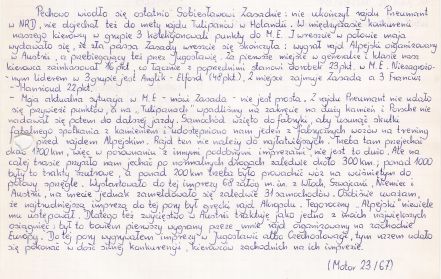 Pechowo wiodło się ostatnio Sobiesławowi Zasadzie: nie ukończył rajdu Pneumant
w NRD, nie dojechał też do mety rajdu Tulipanów w Holandii. W międzyczasie konkurenci
naszego kierowcy w grupie 3 kolekcjonowali punkty do M.E. I wreszcie w połowie maja
wydawało się, że zła passa Zasady wreszcie się skończyła: wygrał rajd Alpejski organizowany
w Austrii, a przebiegający też przez Jugosławię. Za pierwsze miejsce w generalce i klasie nasz
kierowca zainkasował pkt, co łącznie z poprzednimi stanowi dorobek 23 pkt. w M.E. Niezagrożo-
nym liderem w 3 grupie jest Anglik - Elford (48 pkt), 2 miejsce zajmuje Zasada a 3 Francuz
- Hanrioud 22 pkt.
- Moja aktualna sytuacja w M.E - mówi Zasada - nie jest prosta. Z rajdu Pneumant nie udało
się przywieźć punktów, a na "Tulipanach" wpadliśmy na zakręcie na duży kamień i Porsche nie
nadawał się potem do dalszej jazdy. Samochód wzięto do fabryki, aby usunąć skutki
fatalnego spotkania z kamieniem i udostępniono nam jeden z fabrycznych wozów na treningi
przed rajdem Alpejskim. Rajd ten nie należy do najłatwiejszych. Trzeba tam przejechać
około 1700 km, więc w porównaniu z innymi podobnymi imprezami, nie jest to dużo. Ale na
całej trasie przypada nam jechać po normalnych drogach zaledwie około 300 km; ponad 1000
były to trakty szutrowe, a ponad 200 km trzeba było prowadzić wóz na wciśniętym do
podłogi sprzęgle. Wystartowało do tej imprezy 68 załóg m.in. z Włoch, Szwajcarii, Niemiec i
Austrii, na mecie jednak zameldowało się zaledwie 31 samochodów. Osobiście uważam,
że najtrudniejszą imprezą do tej pory był grecki rajd Akropolu. Tegoroczny „Alpejski” niewiele
mu ustępował. Dlatego też zwycięstwo w Austrii traktuję jako jedno z moich największych
osiągnięć i był to bowiem pierwszy wygrany przeze mnie rajd organizowany na zachodzie
Europy. Do tej pory wygrywałem imprezy w Jugosławii albo Czechosłowacji, tym razem udało
się pokonać w dość silnej konkurencji, kierowców zachodnich na ich imprezie.
(Motor 23/67)